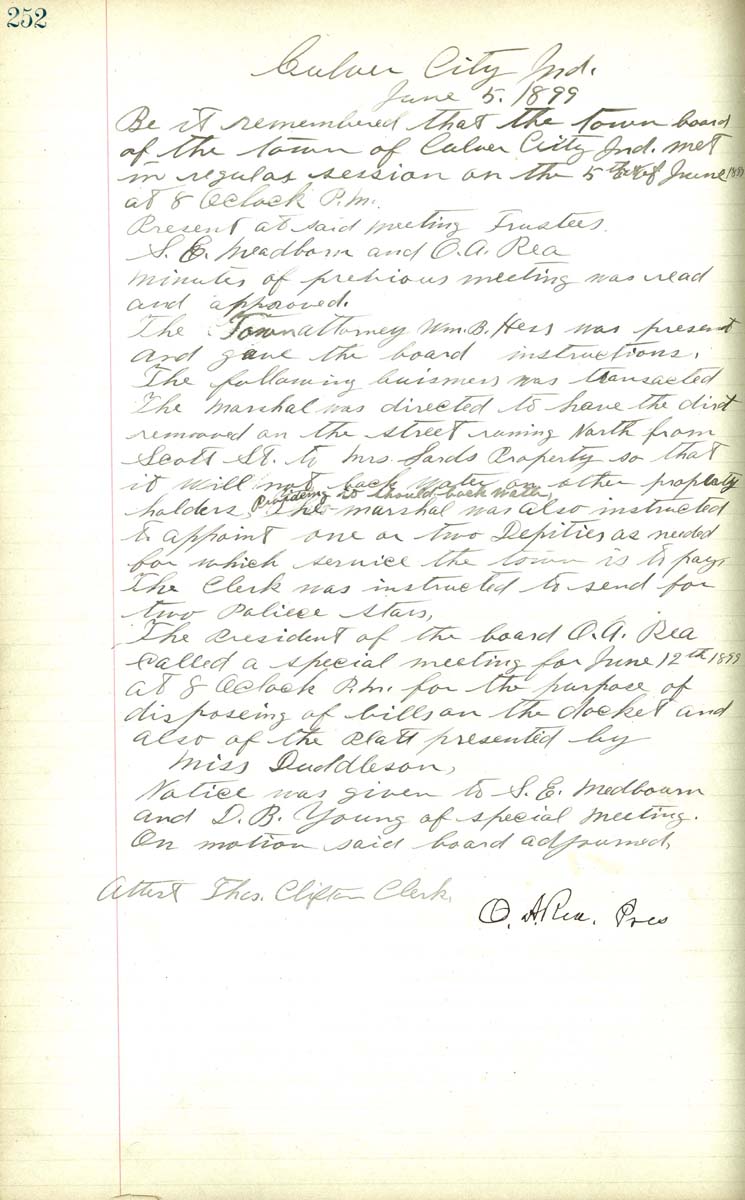 252
Culver City Ind.
June 5. 1899
Be it remembered that the town board
of the town of Culver City Ind. met
in regular session on the 5th of June 1899
at 8 Oclock P.m.
Present at said meeting Trustees.
S. E. Meadborn and O. A. Rea
minutes of previous meeting was read
and approved.
The Town attorney Wm. B. Hess was present
and gave the board instructions.
The following buisness was transacted
The Marshal was directed to have the dirt
removed on the street runing North from
Scott St. to Mrs. Property so that
it will not back water on other proplaty
holders. Providing it should back water,
The marshal was also instructed
to appoint one or two Depities as needed
for which service the town is to pay.
The Clerk was instructed to send for
two Poliece stars,
The President of the board O. A. Rea
called a special meeting for June 12th 1899
at 8 Oclock P.m. for the purpose of
disposeing of bills on the docket and
also of the Platt presented by
Miss Duddleson,
Notice was given to S. E. Medbourn
and D. B. Young of special meeting.
On motion said board adjourned,
Attest Thos. Clifton Clerk.
O. A. Rea. Pres